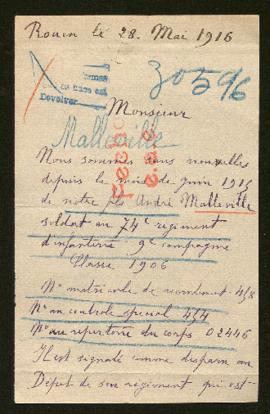 Rouen le 28. Mai 1916
30596
Devolver
Monsieur
Malleville
Nous sommes sans nouvelles
depuis le mois de juin 1915
de notre fils André Malleville
soldat au 74e regiment
d'infanterie 9e compagnie
Classe 1906
No matricule de recrutement 418
No au controle special 454
No au repertoire du corps 02446
Il est signalé comme disparu au
Dépot de son régiment qui est